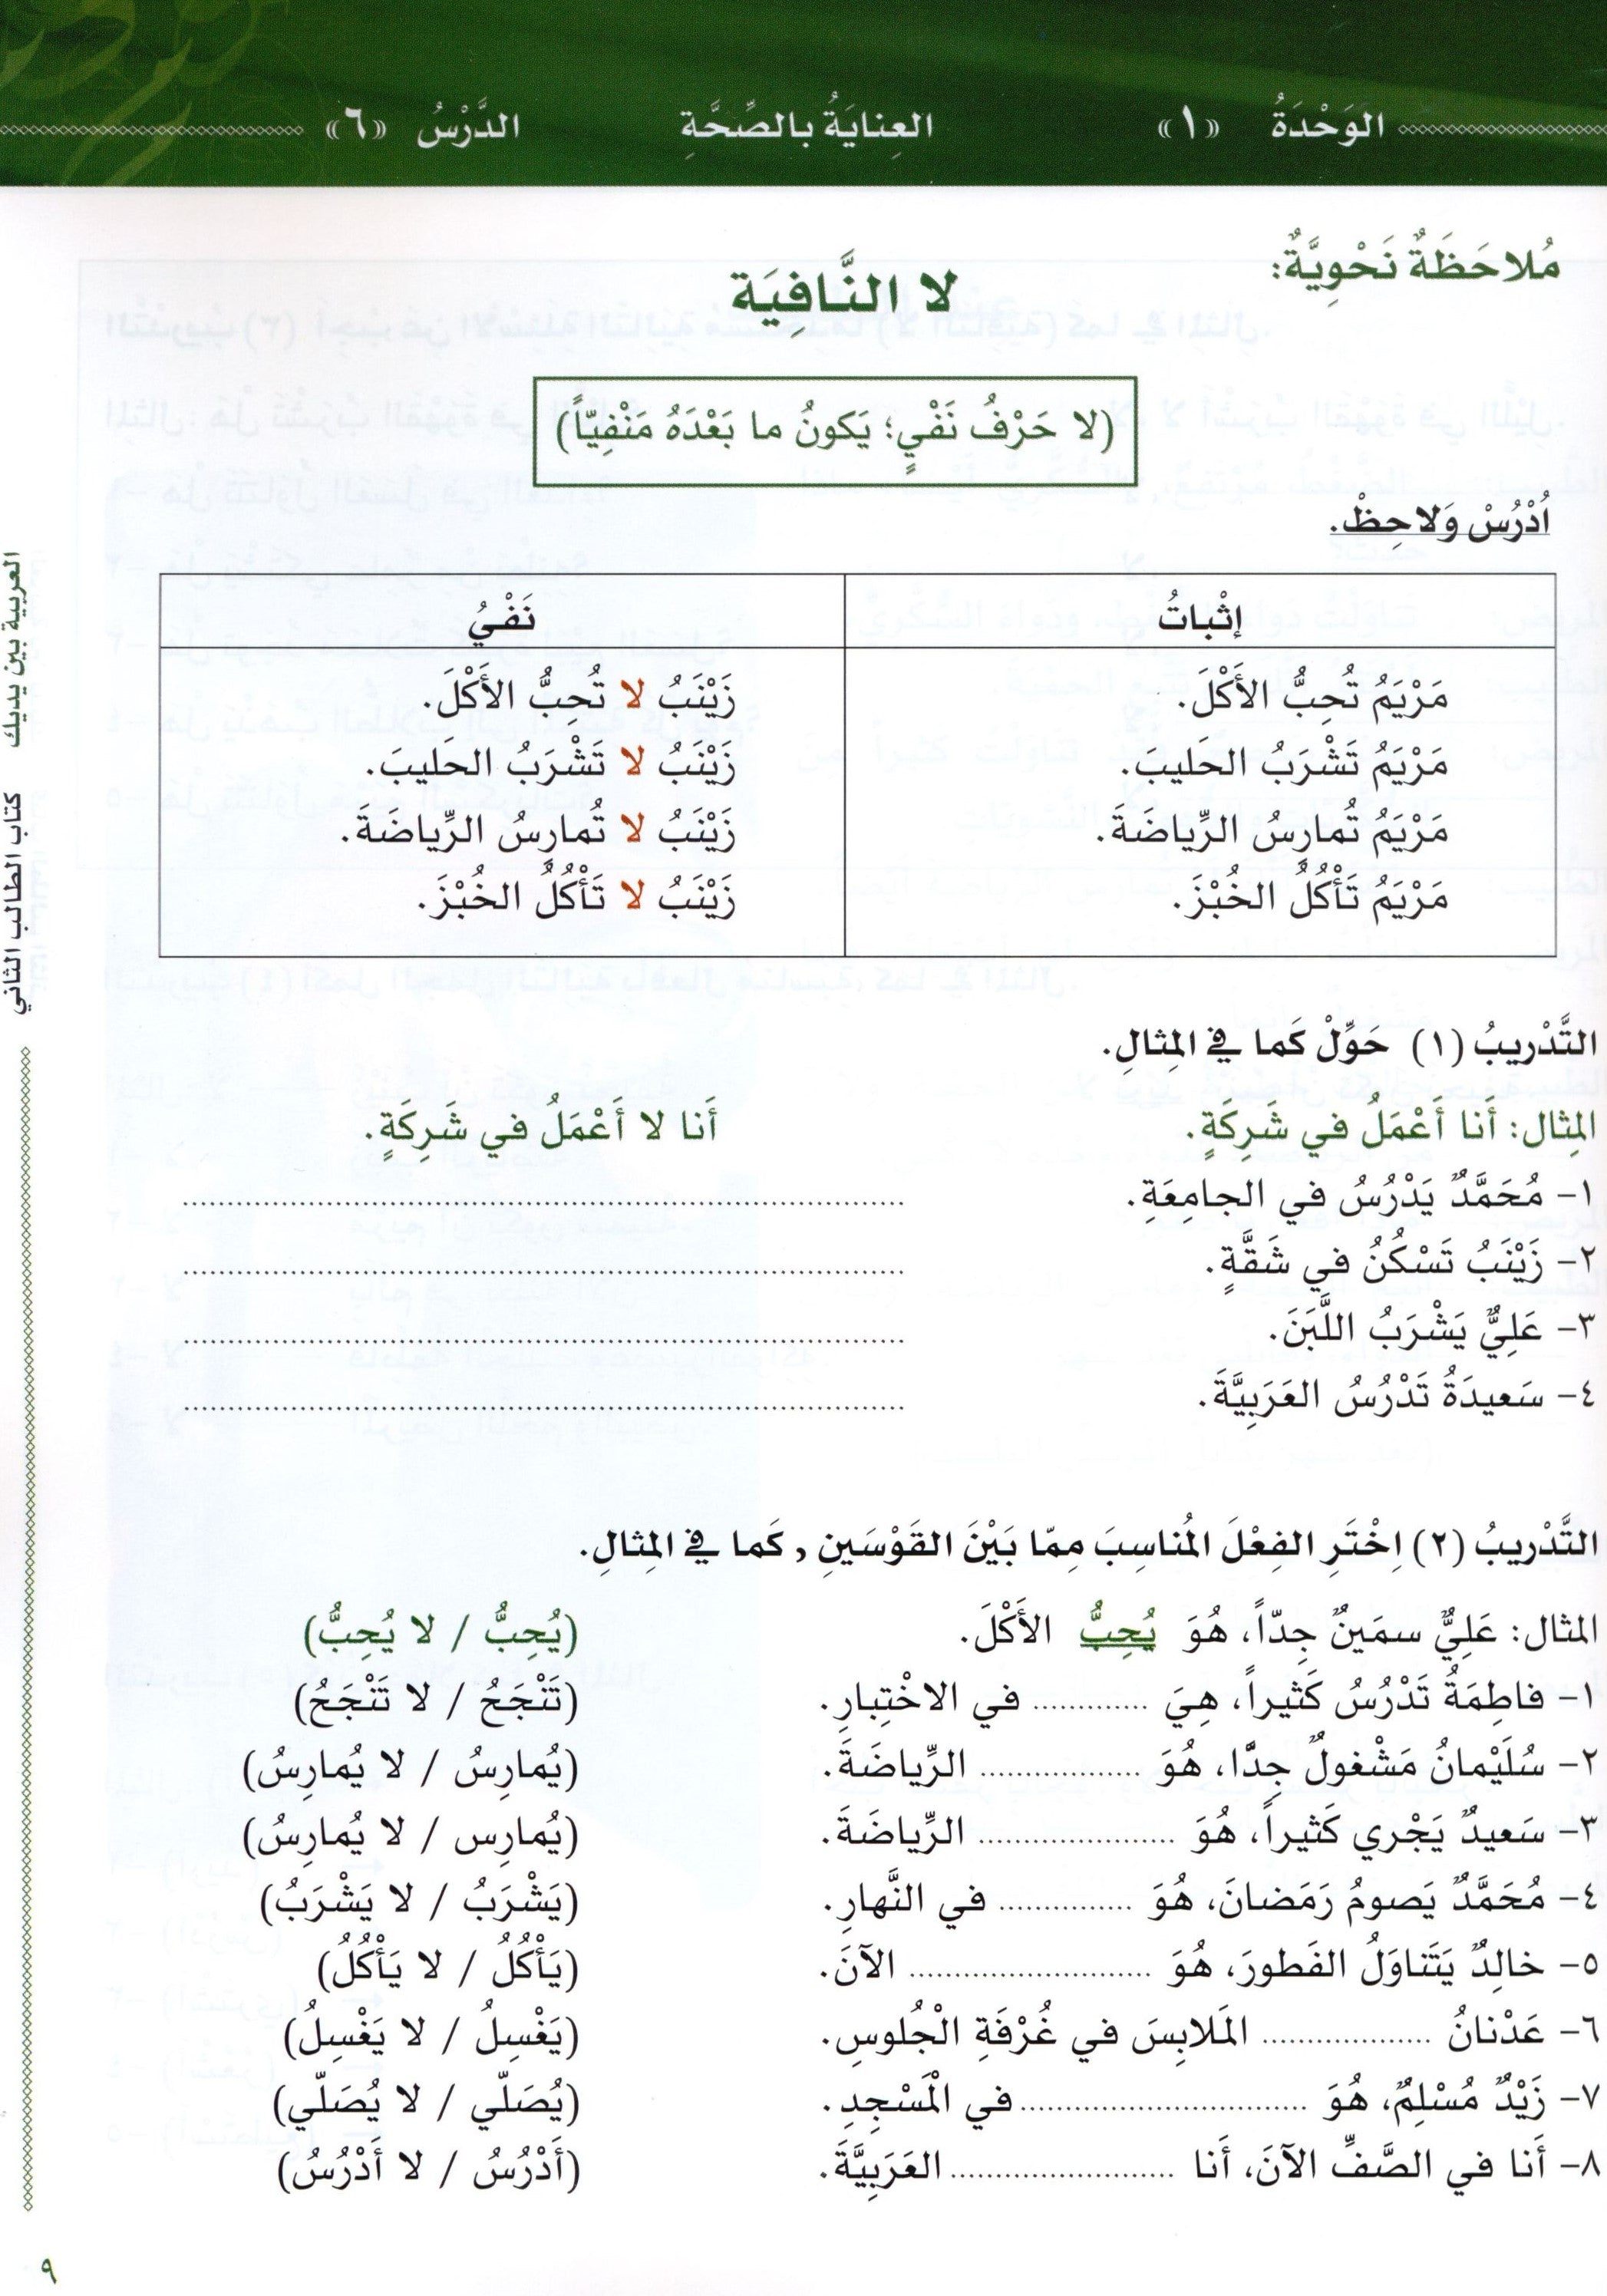 الوَحْدَةُ «١» العِنايَةُ بالصِّحَّةِ الدَّرْسُ «٦»
مُلاحَظَةٌ نَحْوِيَّةٌ:
لا النَّافِيَة
(لا حَرْفُ نَفْيٍ؛ يَكونُ ما بَعْدَهُ مَنْفِيّاً)
اُدْرُسْ وَلاحِظْ.
إثْباتُ نَفْيُ
مَرْيَمُ تُحِبُّ الأَكْلَ. زَيْنَبُ لا تُحِبُّ الأَكْلَ.
مَرْيَمُ تَشْرَبُ الحَليبَ. زَيْنَبُ لا تَشْرَبُ الحليبَ.
مَرْيَمُ تُمارِسُ الرِّياضَةَ. زَيْنَبُ لا تُمارِسُ الرِّياضَةَ.
مَرْيَمُ تَأْكُلُ الخُبْزَ. زَيْنَبُ لا تَأْكُلُ الخُبْزَ.
التَّدْريبُ (١) حَوِّلْ كَما في المِثالِ.
المِثال: أَنا أَعْمَلُ في شَرِكَةٍ. أَنا لا أَعْمَلُ في شَرِكَةٍ.
١- مُحَمَّدٌ يَدْرُسُ في الجامِعَةِ. ........................
٢- زَيْنَبُ تَسْكُنُ في شَقَّةٍ. ........................
٣- عَلِيٌّ يَشْرَبُ اللَّبَنَ. ........................
٤- سَعيدَةُ تَدْرُسُ العَرَبِيَّةَ. ........................
التَّدْريبُ (٢) اِخْتَرِ الفِعْلَ المُناسِبَ مِمّا بَيْنَ القَوْسَينِ , كَما في المِثالِ.
المثال: عَلِيٌّ سمَينٌ جِدّاً، هُوَ يُحِبُّ الأَكْلَ. (يُحِبُّ / لا يُحِبُّ)
١- فاطِمَةُ تَدْرُسُ كَثيراً، هِيَ ............ في الاخْتِبارِ. (تَنْجَحُ / لا تَنْجَحُ)
٢- سُلَيْمانُ مَشْغولٌ جِدًّا، هُوَ ................ الرِّياضَةَ. (يُمارِسُ / لا يُمارِسُ)
٣- سَعيدٌ يَجْري كَثيراً، هُوَ .................... الرِّياضَةَ. (يُمارِس / لا يُمارِسُ)
٤- مُحَمَّدٌ يَصومُ رَمَضانَ، هُوَ .............. في النَّهارِ. (يَشْرَبُ / لا يَشْرَبُ)
٥- خالِدٌ يَتَناوَلُ الفَطورَ، هُوَ ........................ الآنَ. (يَأْكُلُ / لا يَأْكُلُ)
٦- عَدْنانُ ................. المَلابِسَ في غُرْفَةِ الْجُلوسِ. (يَغْسِلُ / لا يَغْسِلُ)
٧- زَيْدٌ مُسْلِمٌ، هُوَ ............................. في الْمَسْجِدِ. (يُصَلّي / لا يُصَلّي)
٨- أَنا في الصَّفِّ الآنَ، أَنا ....................... العَرَبِيَّةَ. (أَدْرُسُ / لا أَدْرُسُ)
العربية بين يديك كتاب الطالب الثاني
٩